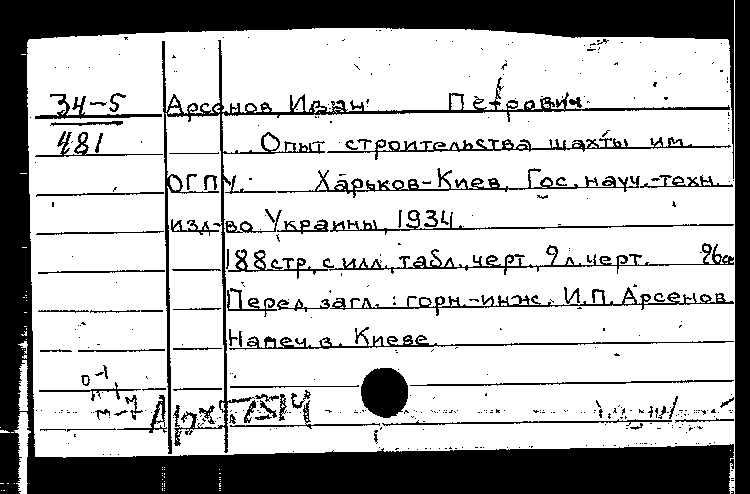 34-5 Арсенов, Иван Петрович.
481 ... Опыт строительства шахты им.
ОГПУ. Харьков-Киев, Гос. науч.-техн.
изд-во Украины, 1934.
188 стр., с илл., табл., черт., 9 л. черт. 26см
Перед загл.: горн.-инж. И.П. Арсенов.
Напеч. в. Киеве.
0-1
п-1
м-7
Арх